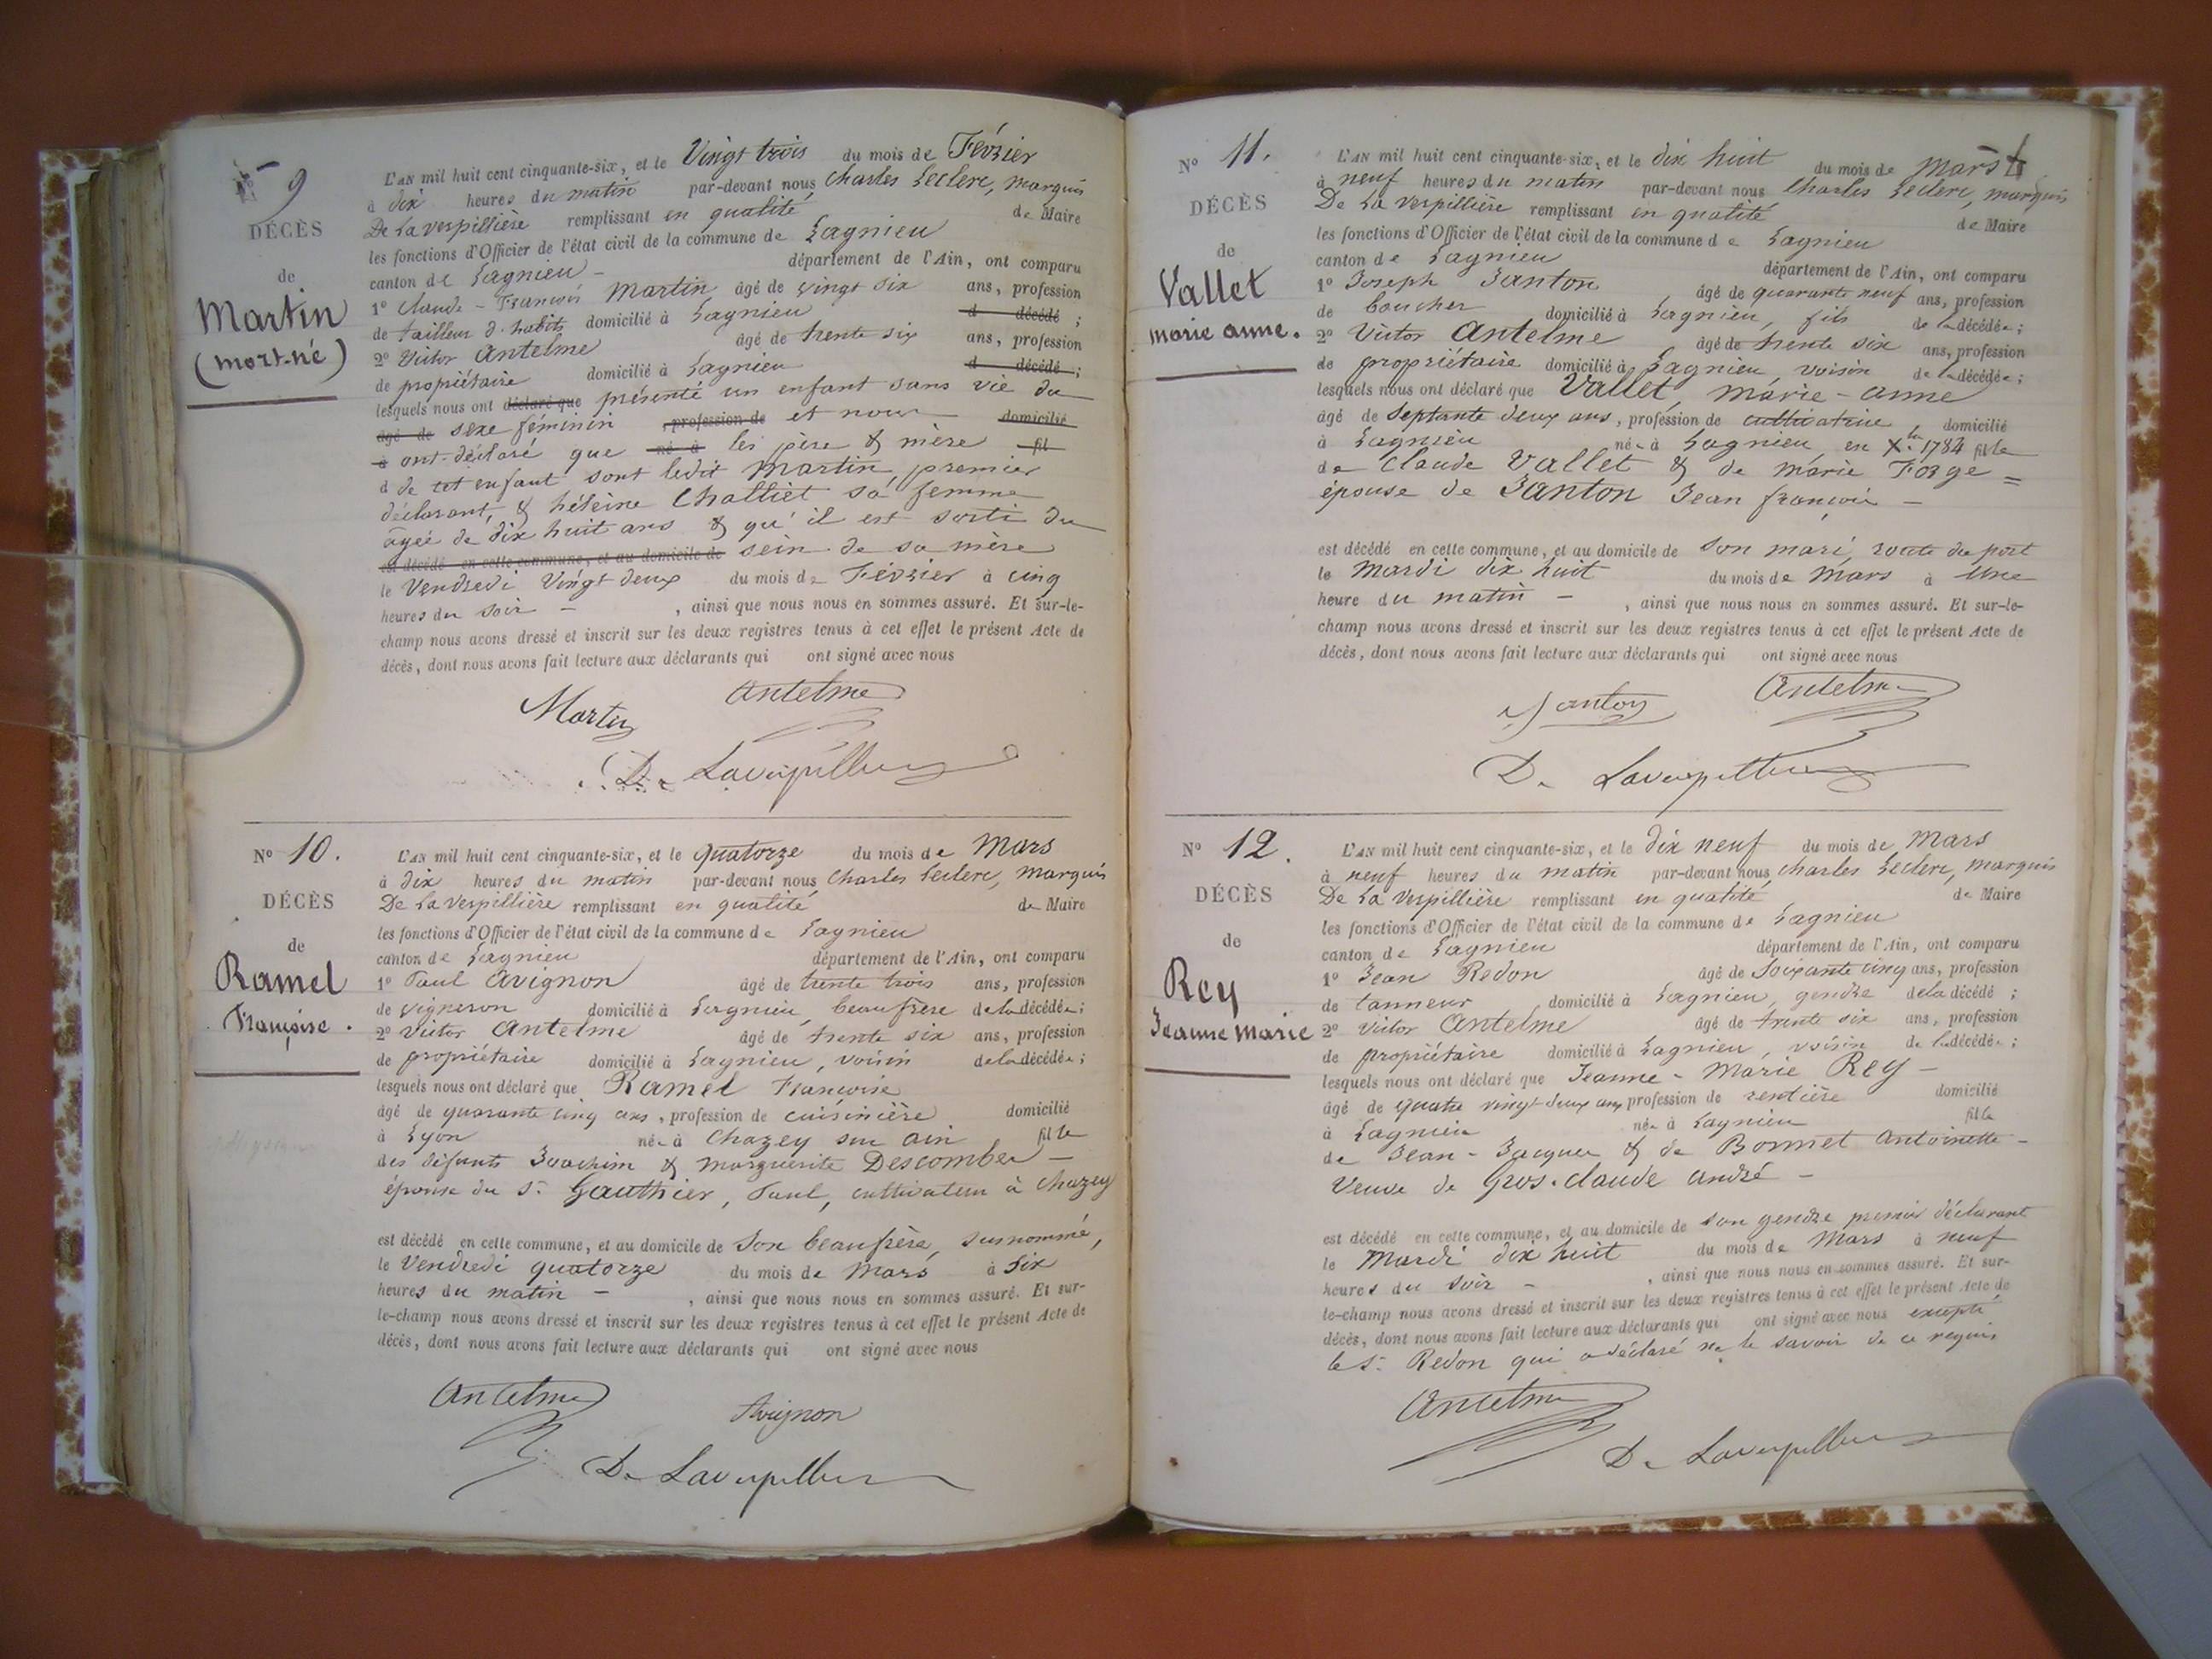 N° 9
DÉCÈS
de
Martin
(mort-né)
L'AN mil huit cent cinquante-six, et le Vingt trois du mois de Février
à dix heures du matin par-devant nous Charles Leclerc, marquis
De Laverpillière remplissant en qualité de Maire
les fonctions d'Officier de l'état civil de la commune de Lagnieu
canton de Lagnieu - département de l'Ain, ont comparu
1° Claude - François Martin âgé de vingt six ans, profession
de tailleur d'habits domicilié à Lagnieu d décédé ;
2° Victor Antelme âgé de trente six ans, profession
de propriétaire domicilié à Lagnieu d décédé ;
lesquels nous ont déclaré que présenté un enfant sans vie du
âgé de sexe féminin , profession de et nous domicilié
à ont déclaré que né à les père & mère fil
d de cet enfant sont ledit Martin premier
déclarant, & hélène Challiet sa femme
agée de dix huit ans & qu'il est sorti du
est décédé en cette commune, et au domicile de sein de sa mère
le Vendredi Vingt deux du mois de Février à cinq
heures du soir - , ainsi que nous nous en sommes assuré. Et sur-le-
champ nous avons dressé et inscrit sur les deux registres tenus à cet effet le présent Acte de
décès, dont nous avons fait lecture aux déclarants qui ont signé avec nous
Martin Antelme
De Laverpilliere
N° 10.
DÉCÈS
de
Ramel
Françoise.
L'AN mil huit cent cinquante-six, et le quatorze du mois de Mars
à dix heures du matin par-devant nous Charles Leclerc, Marquis
De La Verpillière remplissant en qualité de Maire
les fonctions d'Officier de l'état civil de la commune de Lagnieu
canton de Lagnieu département de l'Ain, ont comparu
1° Paul Avignon âgé de trente trois ans, profession
de vigneron domicilié à Lagnieu, beaufrère de la décédée ;
2° Victor Antelme âgé de trente six ans, profession
de propriétaire domicilié à Lagnieu, voisin de la décédée ;
lesquels nous ont déclaré que Ramel Françoise
âgé de quarante cinq ans, profession de cuisinière domicilié
à Lyon née à Chazey sur ain fille
des défunts Joachim & Marguerite Descombes -
épouse du Sr. Gauthier, Paul, cultivateur à Chazey
est décédé en cette commune, et au domicile de son beaufrère, susnommé,
le Vendredi quatorze du mois de Mars à Six
heures du matin - , ainsi que nous nous en sommes assuré. Et sur-
le-champ nous avons dressé et inscrit sur les deux registres tenus à cet effet le présent Acte de
décès, dont nous avons fait lecture aux déclarants qui ont signé avec nous
Antelme Avignon
De Laverpilliere
N° 11.
DÉCÈS
de
Vallet
marie anne.
L'AN mil huit cent cinquante-six, et le dix huit du mois de Mars
à neuf heures du matin par-devant nous Charles Leclerc, marquis
De La Verpillière remplissant en qualité de Maire
les fonctions d'Officier de l'état civil de la commune de Lagnieu
canton de Lagnieu département de l'Ain, ont comparu
1° Joseph Janton, âgé de quarante neuf ans, profession
de boucher domicilié à Lagnieu, fils de la décédée ;
2° Victor Antelme âgé de trente six ans, profession
de propriétaire domicilié à Lagnieu, voisin de la décédée ;
lesquels nous ont déclaré que Vallet, Marie-anne
âgé de Septante deux ans, profession de cultivatrice, domicilié
à Lagnieu née à Lagnieu, en Xbre 1784 fille
de Claude Vallet & de Marie Forge =
épouse de Janton Jean françois -
est décédé en cette commune, et au domicile de son mari, route du port
le Mardi dix huit du mois de Mars à Une
heure du matin - , ainsi que nous nous en sommes assuré. Et sur-le-
champ nous avons dressé et inscrit sur les deux registres tenus à cet effet le présent Acte de
décès, dont nous avons fait lecture aux déclarants qui ont signé avec nous
Janton Antelme
De Laverpilliere
N° 12.
DÉCÈS
de
Rey
Jeanne Marie
L'AN mil huit cent cinquante-six, et le dix neuf du mois de Mars
à neuf heures du matin par-devant nous Charles Leclerc, Marquis
De La Verpillière remplissant en qualité de Maire
les fonctions d'Officier de l'état civil de la commune de Lagnieu
canton de Lagnieu département de l'Ain, ont comparu
1° Jean Redon âgé de Soixante cinq ans, profession
de tanneur domicilié à Lagnieu, gendre de la décédé ;
2° Victor Antelme âgé de trente six ans, profession
de propriétaire domicilié à Lagnieu, voisin de la décédée ;
lesquels nous ont déclaré que Jeanne - Marie Rey -
âgé de quatre vingt deux ans profession de rentière domicilié
à Lagnieu née à Lagnieu fille
de Jean - Jacques & de Bonnet Antoinette -
Veuve de Gros-claude André -
est décédé en cette commune, et au domicile de son gendre premier déclarant
le Mardi dix huit du mois de Mars à neuf
heures du soir - , ainsi que nous nous en sommes assuré. Et sur-
le-champ nous avons dressé et inscrit sur les deux registres tenus à cet effet le présent Acte de
décès, dont nous avons fait lecture aux déclarants qui ont signé avec nous excepté
le Sr. Redon qui a déclaré ne le savoir de ce requis
Antelme
De Laverpilliere